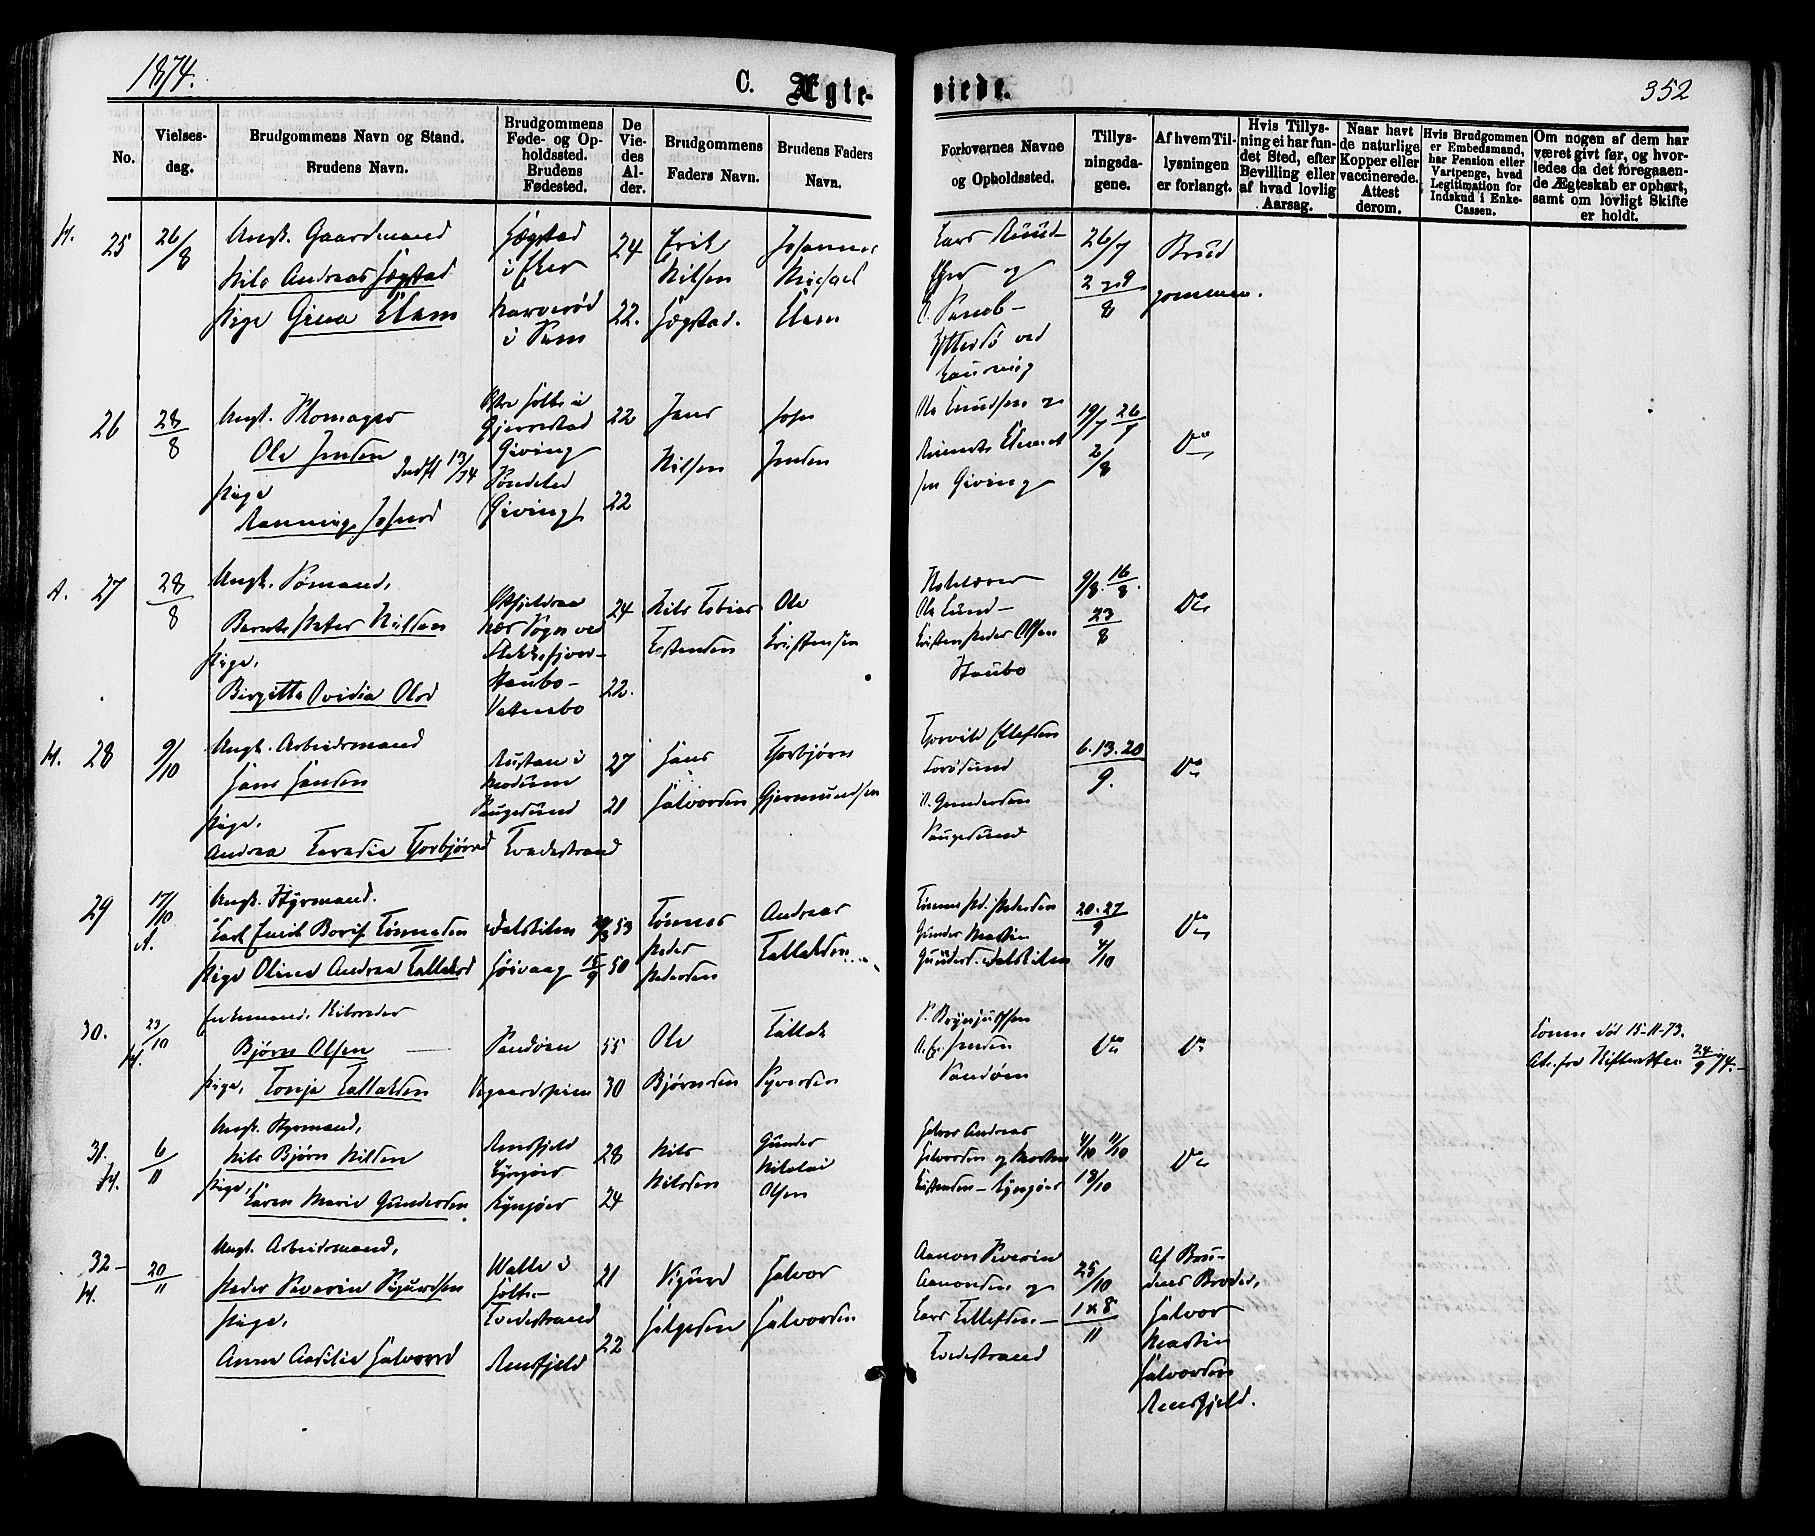 1874.
C. Ægte-
viede.
352
No.
Vielses-
dag.
Brudgommens Navn og Stand.
Brudens Navn.
Brudgommens
Føde- og Op-
holdssted.
Brudens
Fødested.
De
Vie-
des
Al-
der.
Brudgommens
Faders Navn.
Brudens Faders
Navn.
Forlovernes Navne
og Opholdssted.
Tillys-
ningsda-
gene.
Af hvem Til-
lysningen
er forlangt.
Hvis Tillys-
ning ei har fun-
det Sted, efter
Bevilling eller
af hvad lovlig
Aarsag.
Naar havt
de naturlige
Kopper eller
vaccinerede.
Attest
derom.
Hvis Brudgommen
er Embedsmand,
har Pension eller
Vartpenge, hvad
Legitimation for
Indskud i Enke-
Cassen.
Om nogen af dem har
været givt før, og hvor-
ledes da det foregaaen-
de Ægteskab er ophørt,
samt om lovligt Skifte
er holdt.
H. 25 26/8
Ungk. Gaardmand
Nils Andreas Hægstad
Pige Grena Elam
Hægstad
i Eker
i Sem
24
22.
Erik
Nilsen
Hægstad.
Johannes
Michael
Elam
Lars Ruud
Eker og
ved
Laurvig
26/7
2 og 9
8
Brud
gommen.
26 28/8
Ungk.
Ole Jensen
Indfl 13/74
Pige
Holte i
Gjerrestad
Giving
Søndeled
Giving
22
22
Jens
Nilsen
John
Jensen
Ole Knudsen og
Giving
19/7 26/7
2/8
Do
A. 27 28/8
Ungk. Sømand,
Bernt Peter Nilsen
Pige,
Birgitte Ovidia Olsd
Næs Sogn ved
Flekkefjor-
Staubo-
Vatnebo
24
22.
Nils Tobias
Estensen
Ole
Kristensen
Ole Lund-
Kristen Peder Olsen
Staubo
9/8. 16/8.
23/8
Do
H. 28 9/10
Ungk. Arbeidsmand
Hans Hansen
Pige,
Andrea Teresia Torbjørnsd
Rustan i
Modum
Saugesund
Tvedestrand
27
21
Hans
Halvorsen
Torbjørn
Gjermundsen
Torvild Ellefsen
Torøsund
N. Gundersen
Saugesund
6. 13. 20
9.
Do
29 17/10
A.
Ungk. Styrmand.
Carl Emil Borif Tønnesen
Pige Oline Andrea Tallaksd
Dalskilen
Høivaag
53
15/9 50
Tønnes
Peder
Pedersen
Andreas
Tallaksen
Tønnes Pd. Pedersen
Gunder Martin
Gunders. Dalskilen
20. 27
9
4/10
Do
30. 23/10
H.
Enkemand,
Bjørn Olsen
Pige, Tonje Tallaksen
Sandøen
55
30
Ole
Bjørnsen
Tallak
Syversen
S. Brynjulfsen
Jensen
Sandøen
Do
Do
Konen død 15-11-73.
Att. fra Skifteretten 24/9 74.-
31. 6/11
H.
Ungk. Styrmand,
Nils Bjørn Nilsen
Pige,
Karen Marie Gundersen
Ramsfjeld
Lyngøer
Lyngøer
28
24
Nils
Nilssen
Gunder
Nikolai
Olsen
Halvor Andreas
Halvorsen og Morten
Kistensen - Lyngøer
4/10 11/10
18/10
Do
32- 20/11
H.
Ungk. Arbeidsmand,
Peder Severin Sigurdsen
Pige,
Anne Aasilie Halvorsd
Walle i
Holt-
Tvedestrand
Ramsfjeld
21
22
Sigurd
Helgesen
Halvor
Halvorsen
Aanon Severin
Aanonsen og
Lars Tellefsen-
Tvedestrand
25/10
1 & 8
11
Af Bru-
dens Broder,
Halvor
Martin
Halvorsen
Ramsfjeld.